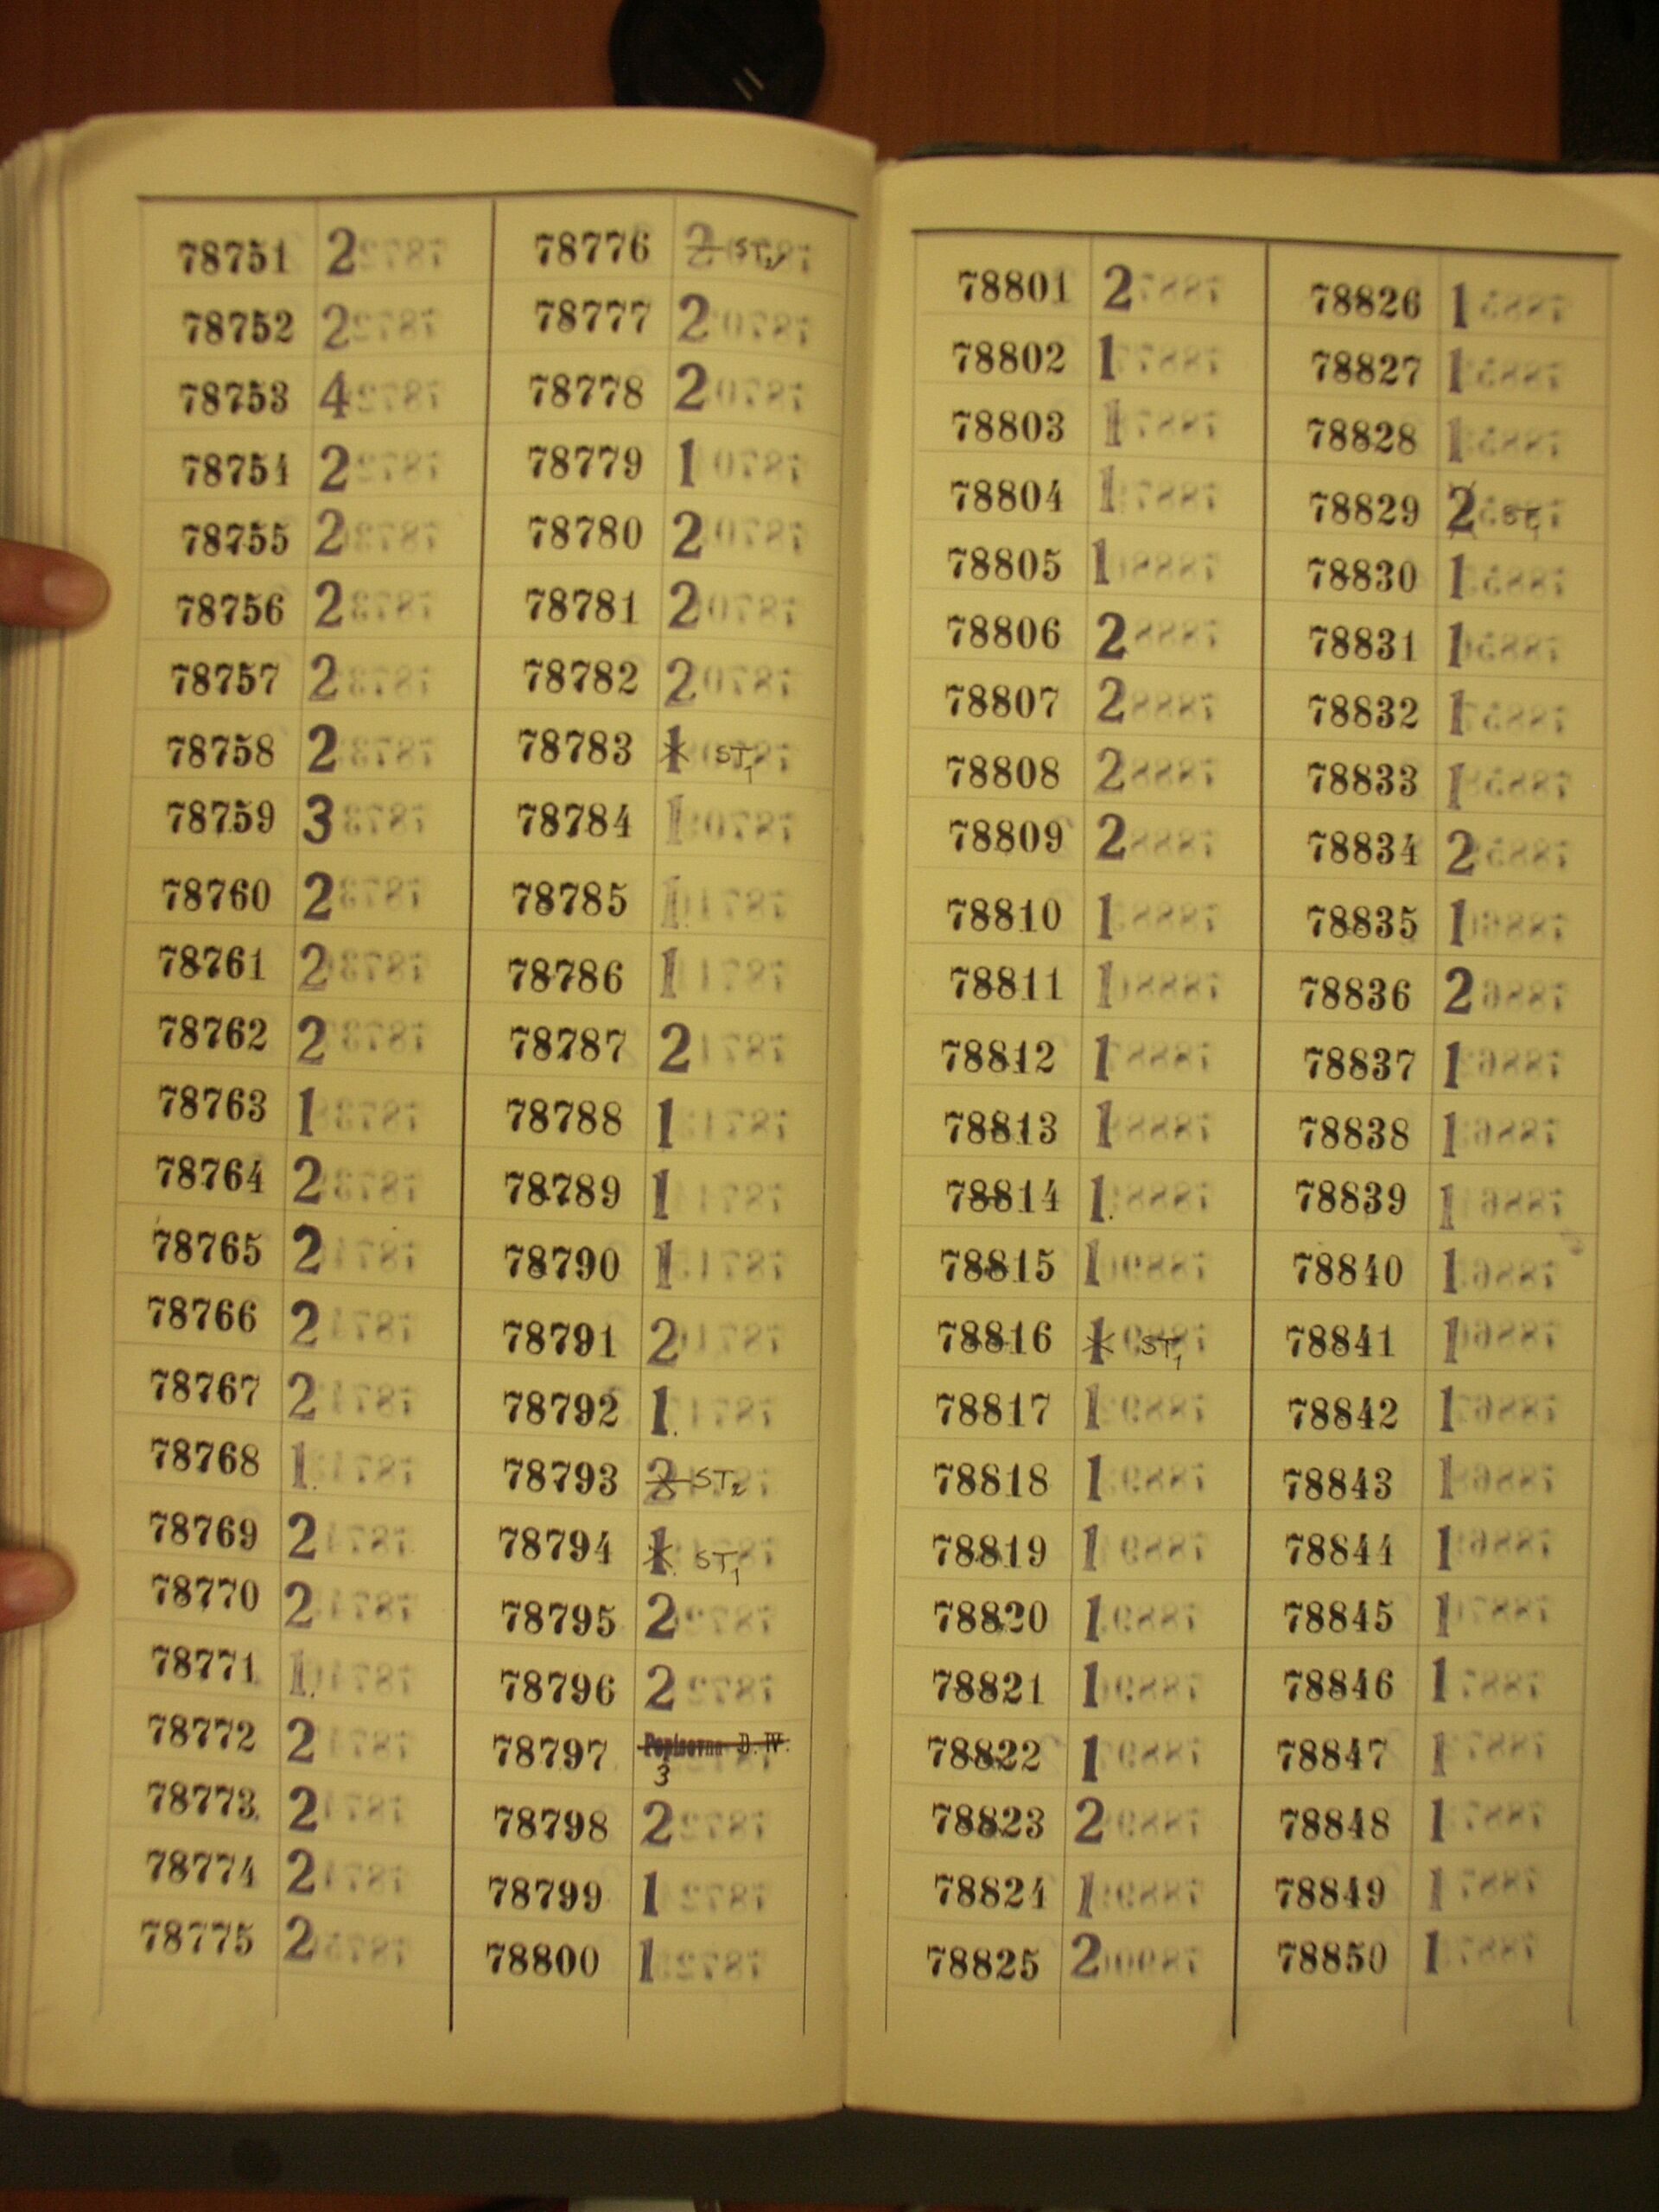 78751 2
78752 2
78753 4
78754 2
78755 2
78756 2
78757 2
78758 2
78759 3
78760 2
78761 2
78762 2
78763 1
78764 2
78765 2
78766 2
78767 2
78768 1.
78769 2
78770 2
78771 1.
78772 2
78773 2
78774 2
78775 2
78776 2 ST
78777 2
78778 2
78779 1
78780 2
78781 2
78782 2
78783 1 ST1
78784 1
78785 1.
78786 1
78787 2
78788 1
78789 1
78790 1
78791 2
78792 1.
78793 2 ST2
78794 1. ST1
78795 2
78796 2
78797 Popisovna D. IV.
3
78798 2
78799 1
78800 1
78801 2
78802 1
78803 1
78804 1
78805 1
78806 2
78807 2
78808 2
78809 2
78810 1
78811 1
78812 1
78813 1
78814 1.
78815 1
78816 1 ST1
78817 1
78818 1
78819 1
78820 1
78821 1
78822 1
78823 2
78824 1
78825 2
78826 1
78827 1
78828 1
78829 2 ST1
78830 1
78831 1
78832 1
78833 1
78834 2
78835 1
78836 2
78837 1
78838 1
78839 1
78840 1
78841 1
78842 1
78843 1
78844 1
78845 1
78846 1
78847 1
78848 1
78849 1
78850 1